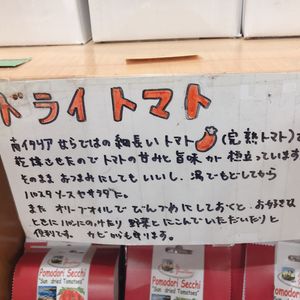 ドライトマト
南イタリアならではの細長いトマト(完熟トマト)を
乾燥させたのでトマトの甘みと旨味が想立っています
そのままおつまみにしてもいいし、湯でもどしてから
パスタソースやサラダに。
また オリーブオイルでびんづめにしておくと、お好きな
ときにパンにのっけたり野菜とにこんでいただいたりと
便利です。カビからも守ります。
Pomodori Secchi
"Sun dried Tomatoes"
Pomodori Secchi
"Sun dried Tomatoes"